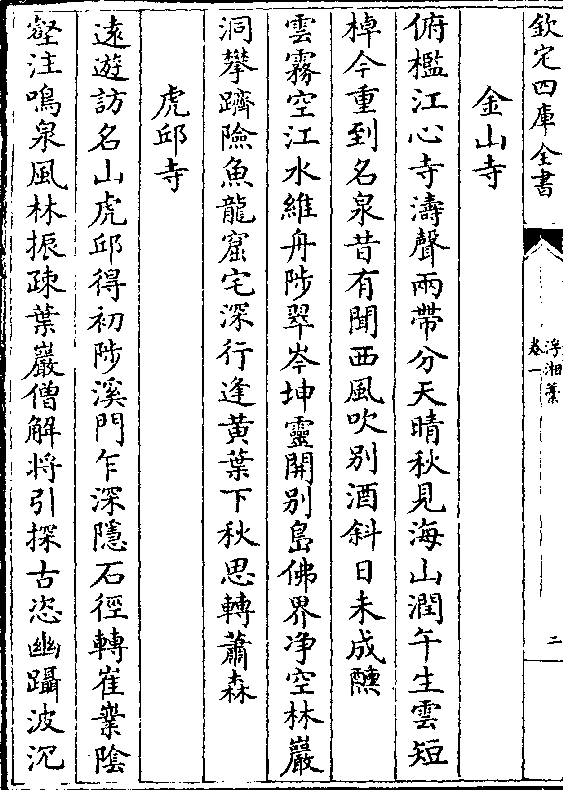 欽定四庫全書
浮湘藁
卷一
二
金山寺
俯檻江心寺濤聲兩帶分天晴秋見海山潤午生雲短
棹今重到名泉昔有聞西風吹別酒斜日未成醺
雲霧空江水維舟陟翠岑坤靈開別島佛界淨空林巖
洞攀躋險魚龍窟宅深行逢黃葉下秋思轉蕭森
虎邱寺
遠遊訪名山虎邱得初陟溪門乍深隱石徑轉崔嶪陰
壑注鳴泉風林振疎葉巖僧解將引探古恣幽躡波沉